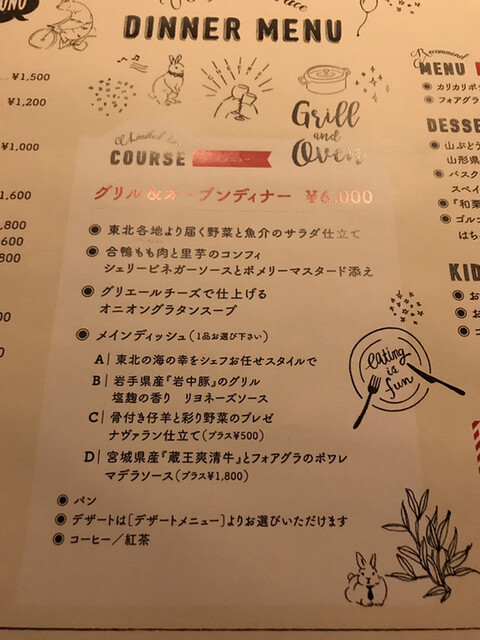 DINNER MENU
¥1,500
¥1,200
¥1,000
1,600
,800
,600
,800
Grill
and
Oven
COURSE
グリル&オーブンディナー ¥6,000
◉東北各地より届く野菜と魚介のサラダ仕立て
◉合鴨もも肉と里芋のコンフィ
シェリービネガーソースとポメリーマスタード添え
◉グリエールチーズで仕上げる
オニオングラタンスープ
◉メインディッシュ(1品お選び下さい)
A|東北の海の幸をシェフお任せスタイルで
B|岩手県産『岩中豚』のグリル
塩麹の香り リヨネーズソース
C|骨付き仔羊と彩り野菜のブレゼ
ナヴァラン仕立て(プラス¥500)
D|宮城県産『蔵王爽清牛』とフォアグラのポワレ
マデラソース(プラス¥1,800)
◉パン
◉デザートは[デザートメニュー]よりお選びいただけます
◉コーヒー/紅茶
eating
is
fun
Recommend
MENU
◉カリカリポ
◉フォアグラ
DESSE
◉山ぶとう
山形県
◉バスク
スペイ
◉『和栗
◉ゴルゴ
はち
KID
◉お
◉お
◉コ